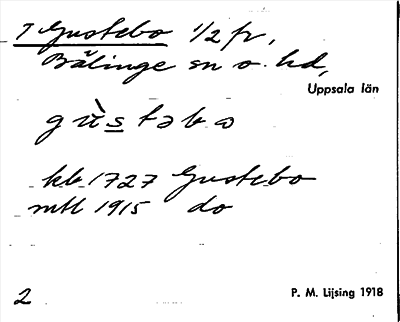 T Gustebo 1/2 fr,
Bälinge sn o. hd,
Uppsala län
gùstəbo
kb 1727 Gustebo
mtl 1915 do
2
P. M. Lijsing 1918